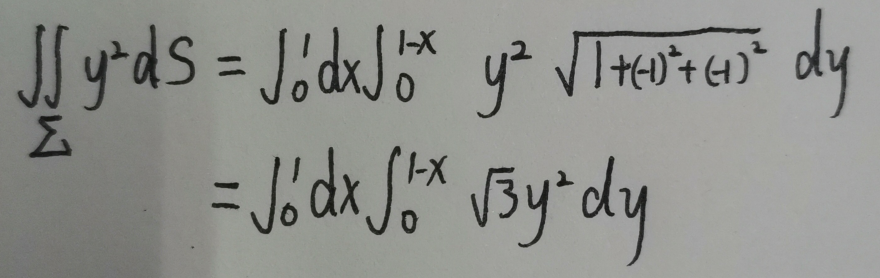 ∬_Σ y² dS = ∫₀¹ dx ∫₀^{1-x} y² √(1+(-1)²+(-1)²) dy
= ∫₀¹ dx ∫₀^{1-x} √3 y² dy